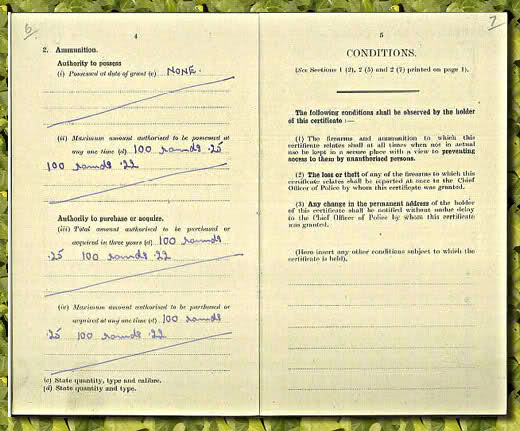 6
4
2. Ammunition.
Authority to possess
(i) Possessed at date of grant (c) NONE.
(ii) Maximum amount authorised to be possessed at
any one time (d) 100 rounds .25
100 rounds .22
Authority to purchase or acquire.
(iii) Total amount authorised to be purchased or
acquired in three years (d) 100 rounds
.25 100 rounds .22
(iv) Maximum amount authorised to be purchased or
acquired at any one time (d) 100 rounds
.25 100 rounds .22
(c) State quantity, type and calibre.
(d) State quantity and type.
7
5
CONDITIONS.
(See Sections 1 (2), 2 (5) and 2 (7) printed on page 1).
The following conditions shall be observed by the holder
of this certificate :—
(1) The firearms and ammunition to which this
certificate relates shall at all times when not in actual
use be kept in a secure place with a view to preventing
access to them by unauthorised persons.
(2) The loss or theft of any of the firearms to which this
certificate relates shall be reported at once to the Chief
Officer of Police by whom this certificate was granted.
(3) Any change in the permanent address of the holder
of this certificate shall be notified without undue delay
to the Chief Officer of Police by whom this certificate
was granted.
(Here insert any other conditions subject to which the
certificate is held).